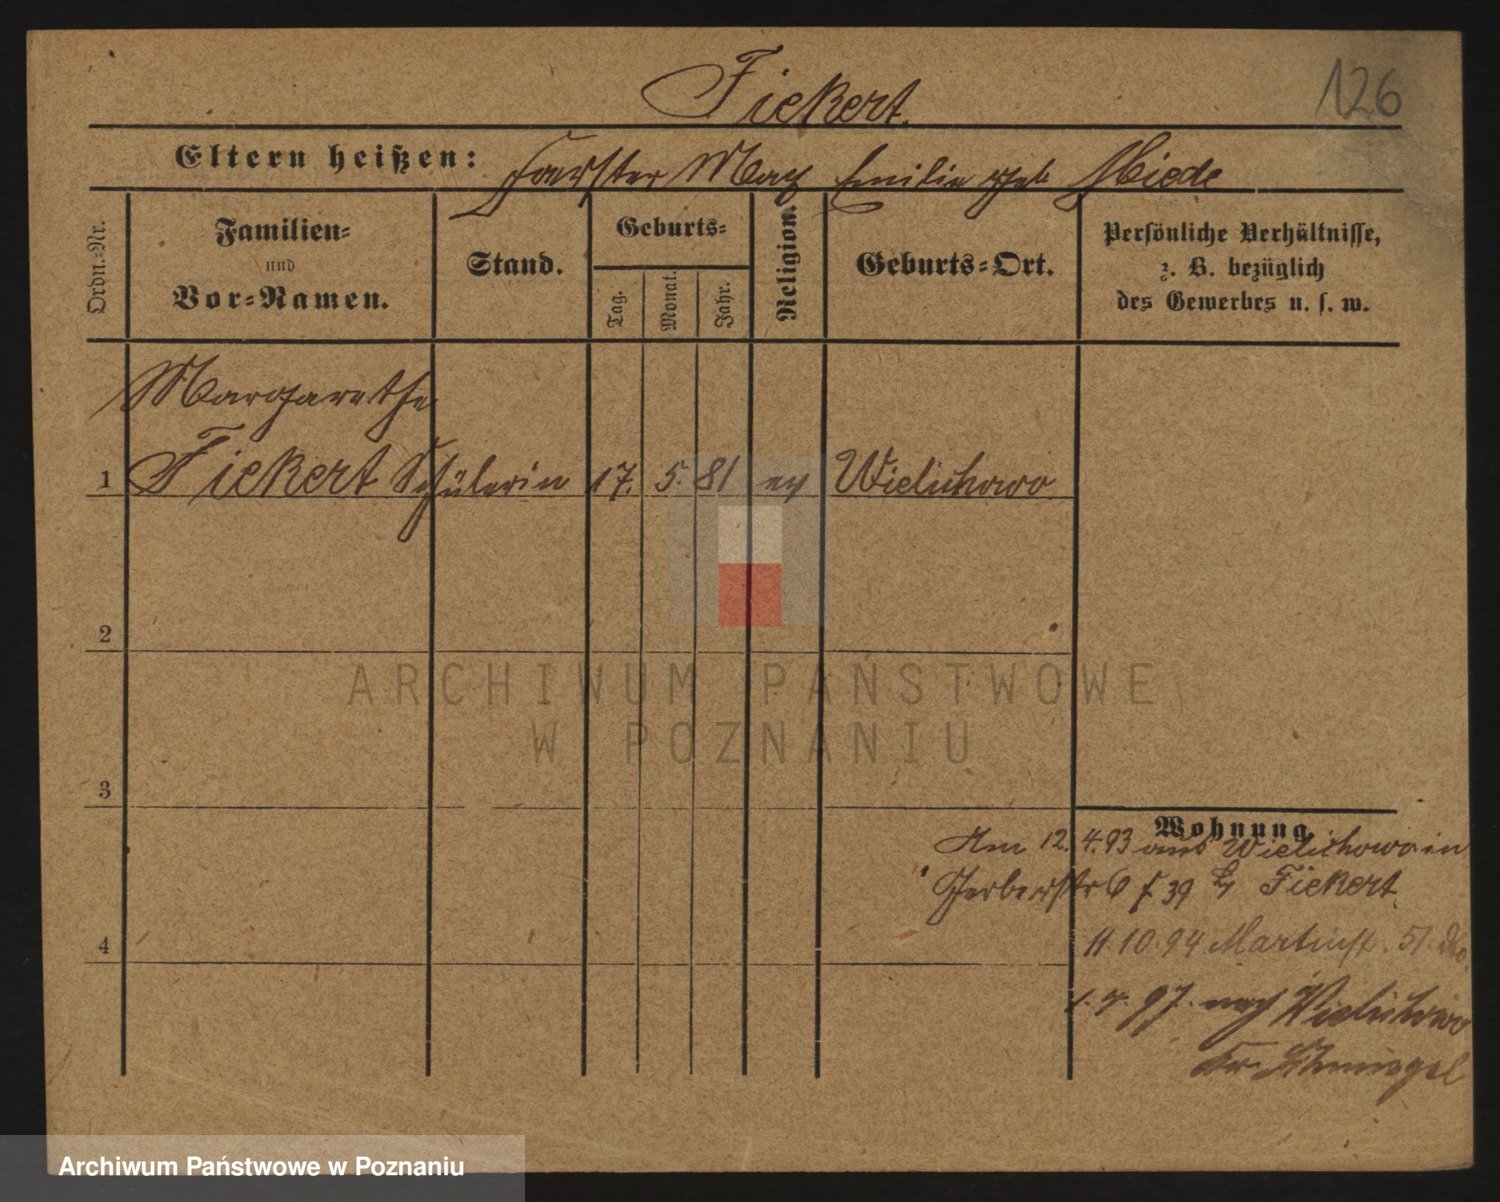 126
Fiekert.
Eltern heißen: Foerster Max Emilie geb Miede
Ordn.-Nr.
Familien-
und
Vor-Namen.
Stand.
Geburts-
Tag.
Monat.
Jahr.
Religion.
Geburts-Ort.
Persönliche Verhältnisse,
z. B. bezüglich
des Gewerbes u. s. w.
Margarethe
1 Fiekert Schülerin 17. 5. 81 ev Wielichowo
2
3
4
Wohnung
Am 12. 4. 93 aus Wielichowo in
Gerberstr 6 f 39 b Fiekert.
11.10.94 Martinst. 51.
1. 7. 97. nach Wielichowo
Kr. Schmiegel
ARCHIWUM PAŃSTWOWE
W POZNANIU
Archiwum Państwowe w Poznaniu